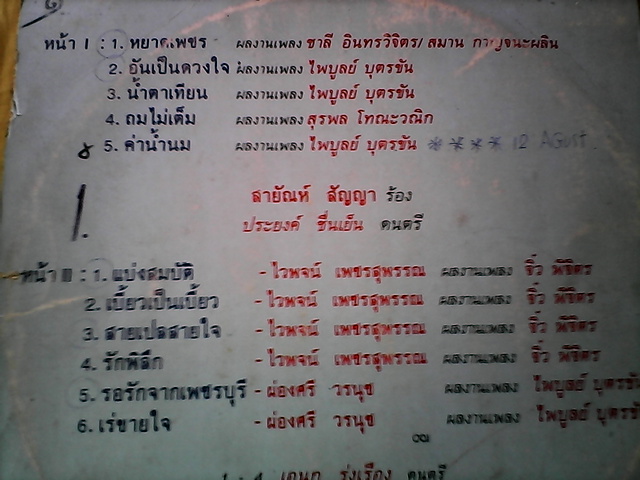 หน้า I : 1. หยาดเพชร ผลงานเพลง ชาลี อินทรวิจิตร/ สมาน กาญจนะผลิน
2. อันเป็นดวงใจ ผลงานเพลง ไพบูลย์ บุตรขัน
3. น้ำตาเทียน ผลงานเพลง ไพบูลย์ บุตรขัน
4. ถมไม่เต็ม ผลงานเพลง สุรพล โทณะวณิก
5. ค่าน้ำนม ผลงานเพลง ไพบูลย์ บุตรขัน **** 12 AGUST.
1.
สายัณห์ สัญญา ร้อง
ประยงค์ ชื่นเย็น ดนตรี
หน้า II : 1. แบ่งสมบัติ - ไวพจน์ เพชรสุพรรณ ผลงานเพลง จิ๋ว พิจิตร
2. เบี้ยวเป็นเบี้ยว - ไวพจน์ เพชรสุพรรณ ผลงานเพลง จิ๋ว พิจิตร
3. สายเปลสายใจ - ไวพจน์ เพชรสุพรรณ ผลงานเพลง จิ๋ว พิจิตร
4. รักพิลึก - ไวพจน์ เพชรสุพรรณ ผลงานเพลง จิ๋ว พิจิตร
5. รอรักจากเพชรบุรี - ผ่องศรี วรนุช ผลงานเพลง ไพบูลย์ บุตรขั
6. เร่ขายใจ - ผ่องศรี วรนุช ผลงานเพลง ไพบูลย์ บุตรขั
1 - 4 เอนก รุ่งเรือง ดนตรี